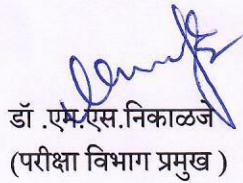 डॉ .एम.एस.निकाळजे
(परीक्षा विभाग प्रमुख )